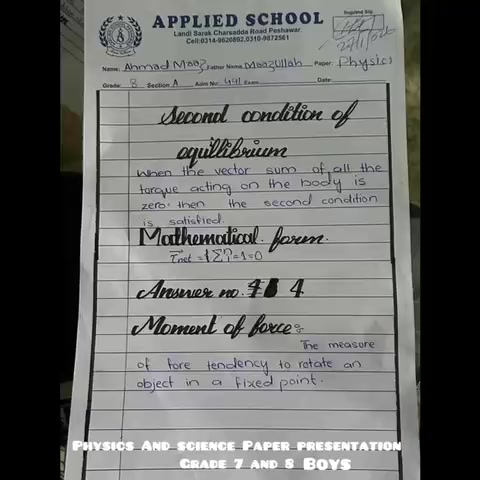 APPLIED SCHOOL
Landi Sarak Charsadda Road Peshawar
Cell:0314-9620892,0310-9872561
Name: Ahmad Maaz Father Name Maazullah Paper: Physics
Grade: 8 Section A Adm No 491 Exam Date:
Second condition of
equillibrium
When the vector sum of all the
tarque acting on the body is
zero. then the second condition
is satisfied.
Mathematical form.
Answer no. 4
Moment of force:
The measure
of fore tendency to rotate an
object in a fixed point.
Physics And science Paper presentation
Grade 7 and 8 Boys